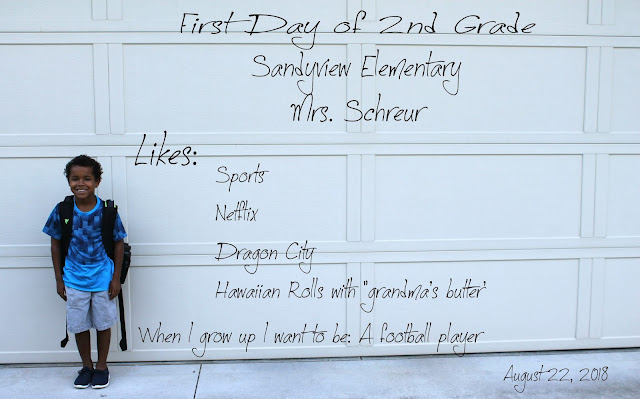 First Day of 2nd Grade
Sandyview Elementary
Mrs. Schreur
Likes:
Sports
Netflix
Dragon City
Hawaiian Rolls with "grandma's butter"
When I grow up I want to be: A football player
August 22, 2018